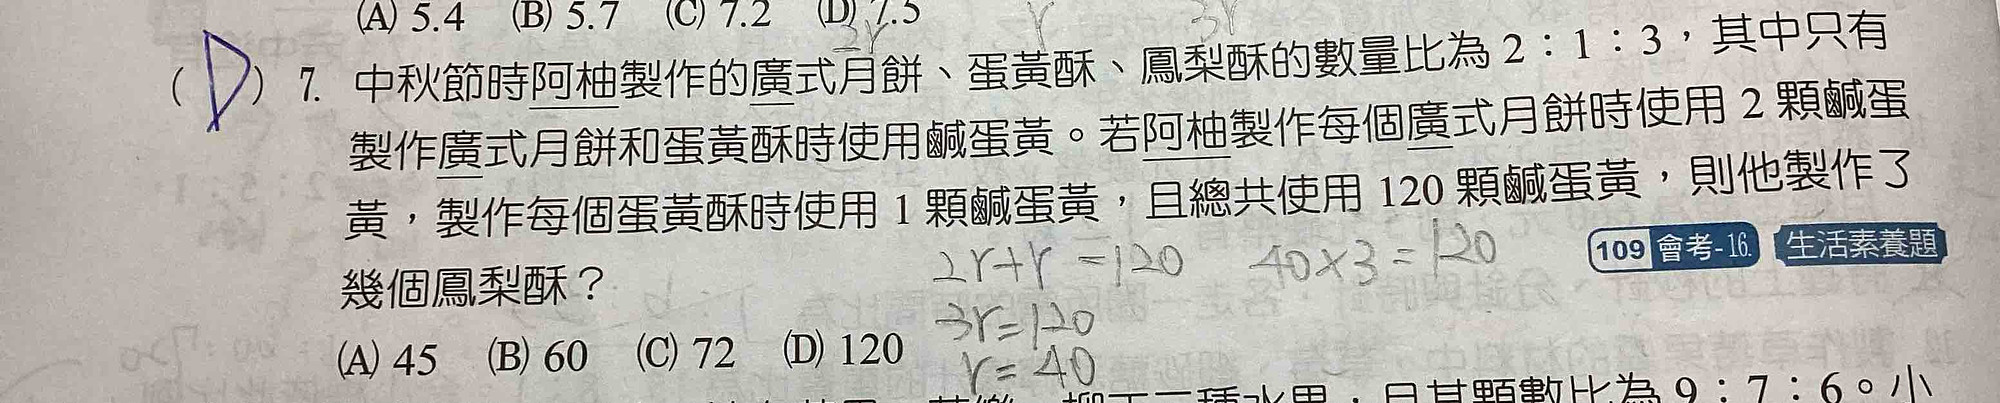 (A) 5.4 (B) 5.7 (C) 7.2 (D) 7.5
2r r 3r
(D) 7. 中秋節時阿柚製作的廣式月餅、蛋黃酥、鳳梨酥的數量比為 2：1：3，其中只有
製作廣式月餅和蛋黃酥時使用鹹蛋黃。若阿柚製作每個廣式月餅時使用 2 顆鹹蛋
黃，製作每個蛋黃酥時使用 1 顆鹹蛋黃，且總共使用 120 顆鹹蛋黃，則他製作了
幾個鳳梨酥？
2r+r=120 40×3=120
109 會考-16. 生活素養題
3r=120
(A) 45 (B) 60 (C) 72 (D) 120
r=40
三種水果，且其顆數比為 9：7：6。小